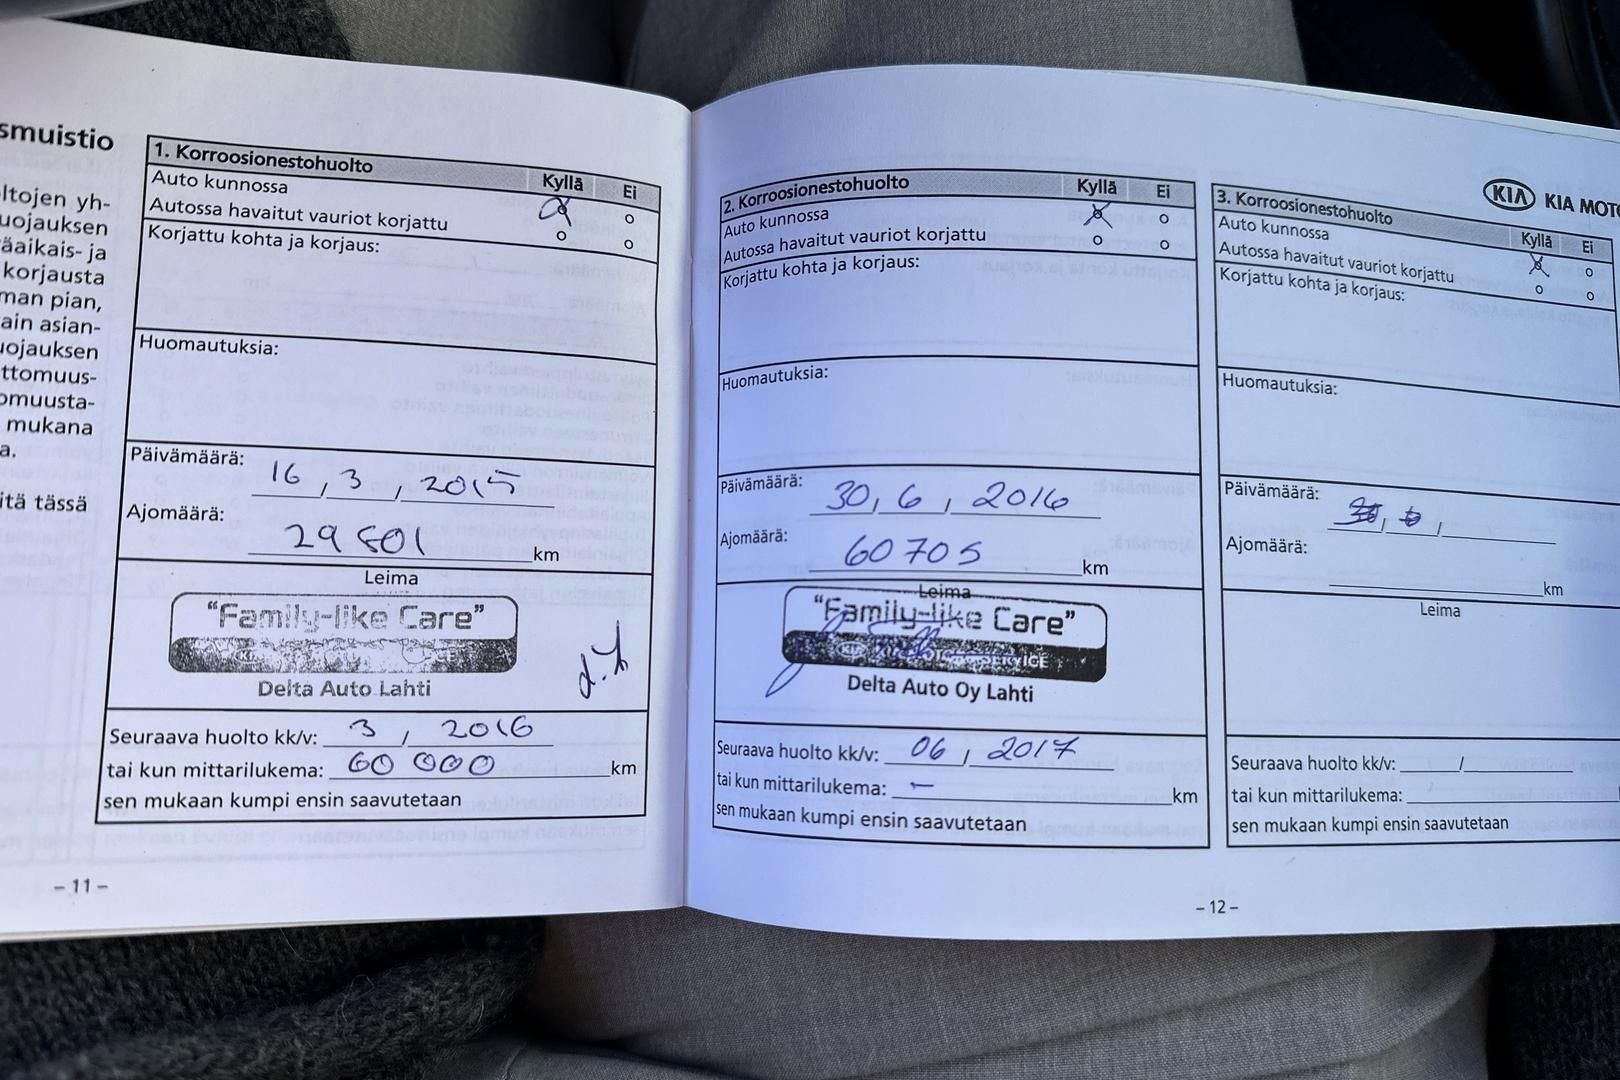 smuistio
ltojen yh-
uojauksen
äaikais- ja
korjausta
man pian,
ain asian-
uojauksen
ttomuus-
omuusta-
mukana
a.
itä tässä
1. Korroosionestohuolto
Kyllä Ei
Auto kunnossa
Autossa havaitut vauriot korjattu
Korjattu kohta ja korjaus:
Huomautuksia:
Päivämäärä: 16, 3, 2015
Ajomäärä: 29 501 km
Leima
"Family-like Care"
Delta Auto Lahti
Seuraava huolto kk/v: 3 / 2016
tai kun mittarilukema: 60 000 km
sen mukaan kumpi ensin saavutetaan
- 11 -
2. Korroosionestohuolto
Kyllä Ei
Auto kunnossa
Autossa havaitut vauriot korjattu
Korjattu kohta ja korjaus:
Huomautuksia:
Päivämäärä: 30, 6, 2016
Ajomäärä: 60705 km
Leima
"Family-like Care"
KIA SERVICE
Delta Auto Oy Lahti
Seuraava huolto kk/v: 06 / 2017
tai kun mittarilukema: – km
sen mukaan kumpi ensin saavutetaan
KIA KIA MOTO
3. Korroosionestohuolto
Kyllä Ei
Auto kunnossa
Autossa havaitut vauriot korjattu
Korjattu kohta ja korjaus:
Huomautuksia:
Päivämäärä:
Ajomäärä: km
Leima
Seuraava huolto kk/v: /
tai kun mittarilukema:
sen mukaan kumpi ensin saavutetaan
- 12 -